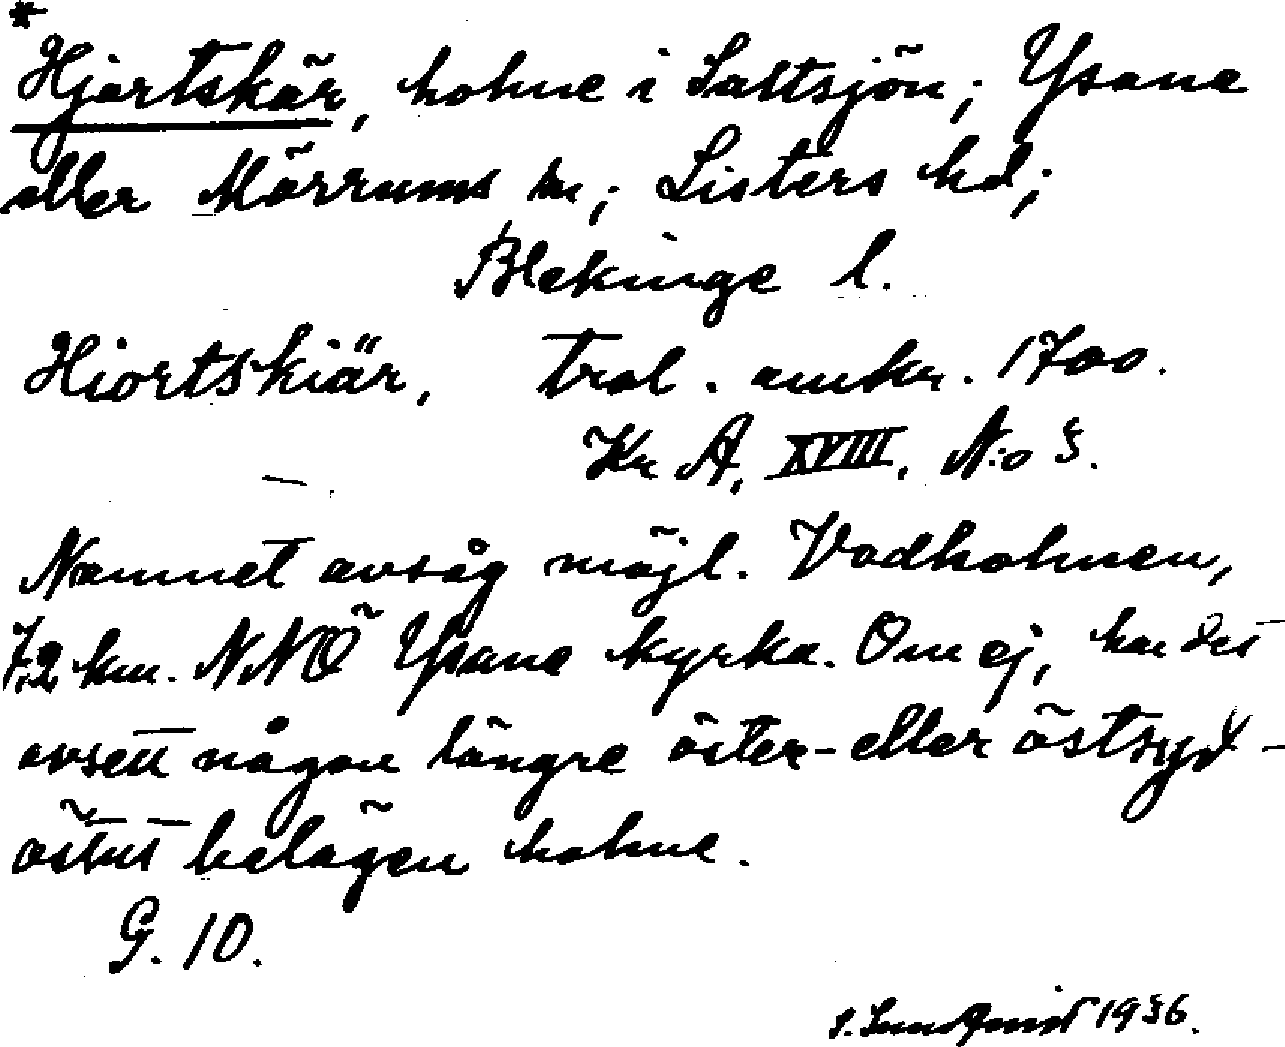 *
Hjortskär, holme i Saltsjön; Ysane
eller Mörrums sn; Listers hd;
Blekinge l.
Hiortskiär, trol. omkr. 1700.
Kr A, XVIII, N:o 3.
Namnet avsåg möjl. Vodholmen,
7,2 km. NNÖ Ysane kyrka. Om ej, har det
avsett någon längre öster- eller östsyd-
östut belägen holme.
G. 10.
S. Sundqvist 1936.